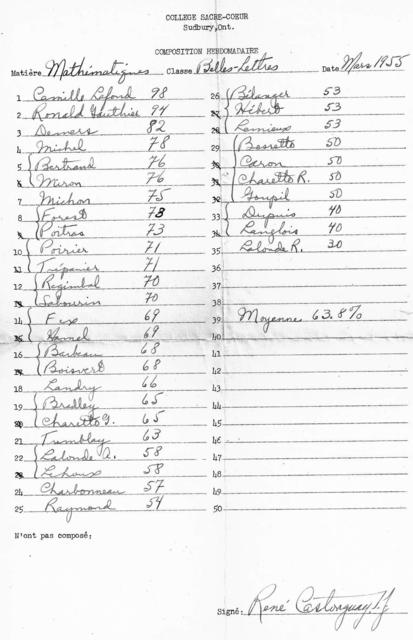 COLLEGE SACRE-COEUR
Sudbury,Ont.
COMPOSITION HEBDOMADAIRE
Matière Mathématiques Classe Belles-Lettres Date Mars 1955
1 Camille Lafond 98
2 Ronald Gauthier 94
3 Demers 82
4 Michel 78
5 Bertrand 76
6 Miron 76
7 Michon 75
8 Forest 73
9 Poitras 73
10 Poirier 71
11 Trépanier 71
12 Regimbal 70
13 Sabourin 70
14 Fex 69
15 Hamel 69
16 Barbeau 68
17 Boisvert 68
18 Landry 66
19 Bradley 65
20 Charette G. 65
21 Tremblay 63
22 Lalonde A. 58
23 Lehoux 58
24 Charbonneau 57
25 Raymond 54
26 Bélanger 53
27 Hébert 53
28 Lemieux 53
29 50
30 Caron 50
31 Charette R. 50
32 Goupil 50
33 Dupuis 40
34 Langlois 40
35 Lalonde R. 30
36
37
38
39 Moyenne 63.8%
40
41
42
43
44
45
46
47
48
49
50
N'ont pas composé:
Signé: René Castonguay, s.j.